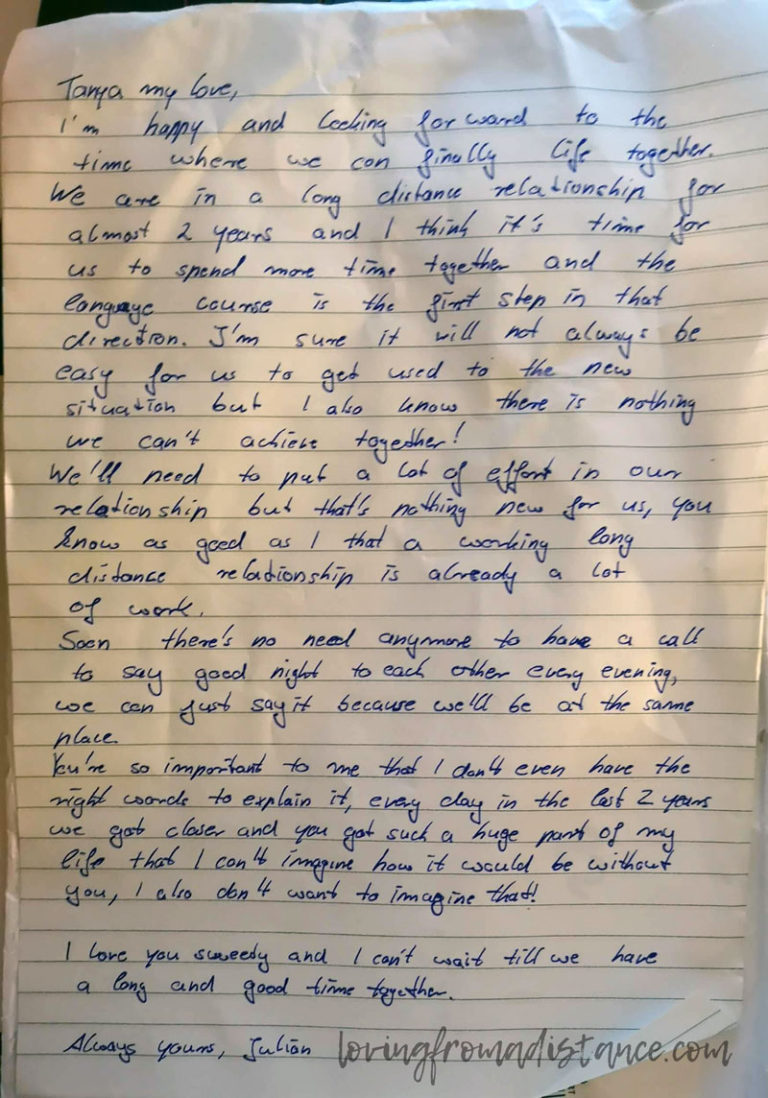 Tanya my love,
I'm happy and looking forward to the
time where we can finally life together.
We are in a long distance relationship for
almost 2 years and I think it's time for
us to spend more time together and the
language course is the first step in that
direction. I'm sure it will not always be
easy for us to get used to the new
situation but I also know there is nothing
we can't achieve together!
We'll need to put a lot of effort in our
relationship but that's nothing new for us, you
know as good as I that a working long
distance relationship is already a lot
of work.
Soon there's no need anymore to have a call
to say good night to each other every evening,
we can just say it because we'll be at the same
place.
You're so important to me that I don't even have the
right words to explain it, every day in the last 2 years
we got closer and you got such a huge part of my
life that I can't imagine how it would be without
you, I also don't want to imagine that!
I love you sweedy and I can't wait till we have
a long and good time together.
Always yours, Julian lovingfromadistance.com